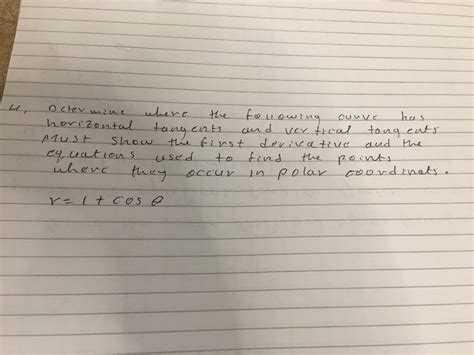 4, Determine where the following curve has
horizontal tangents and vertical tangents
Must show the first derivative and the
equations used to find the points
where they occur in polar coordinats.
r = 1 + cos θ